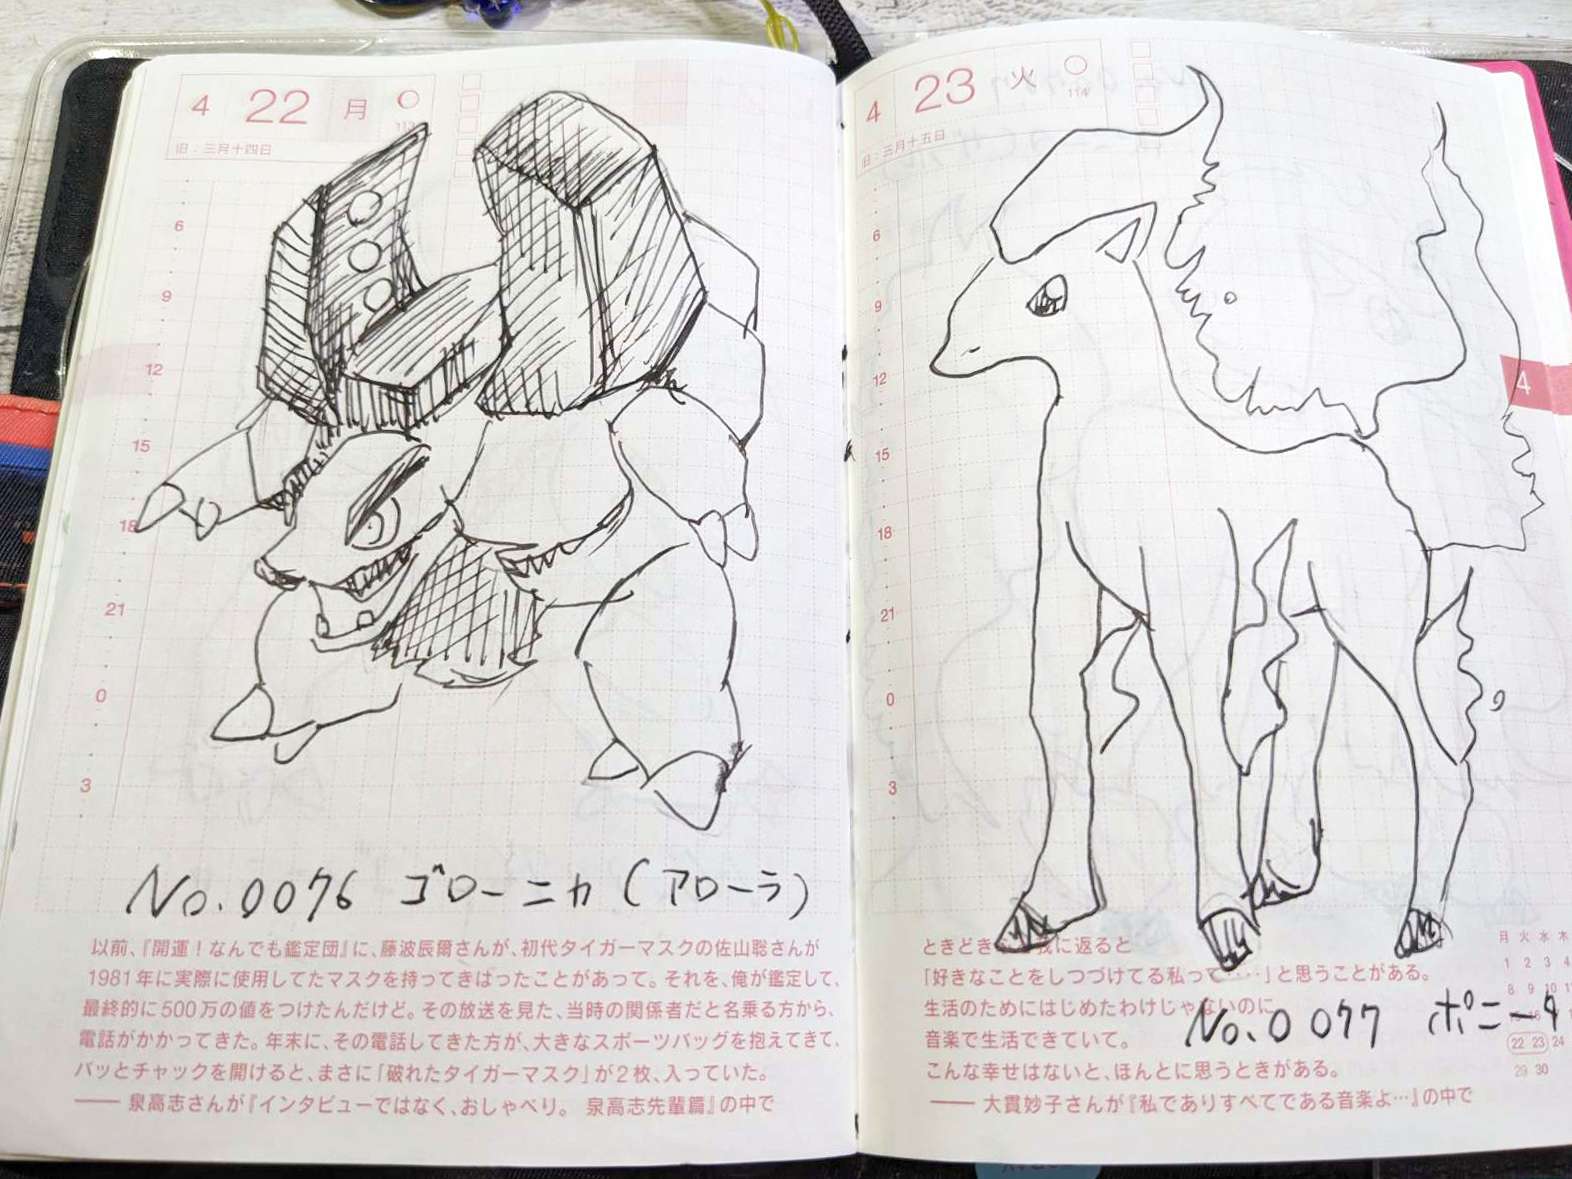 4 22 月
113
旧:三月十四日
6
9
12
15
18
21
0
3
No.0076 ゴローニャ(アローラ)
以前、『開運!なんでも鑑定団』に、藤波辰爾さんが、初代タイガーマスクの佐山聡さんが
1981年に実際に使用してたマスクを持ってきはったことがあって。それを、俺が鑑定して、
最終的に500万の値をつけたんだけど。その放送を見た、当時の関係者だと名乗る方から、
電話がかかってきた。年末に、その電話してきた方が、大きなスポーツバッグを抱えてきて、
バッとチャックを開けると、まさに「破れたタイガーマスク」が2枚、入っていた。
―― 泉高志さんが『インタビューではなく、おしゃべり。 泉高志先輩篇』の中で
4 23 火
114
旧:三月十五日
6
9
12
15
18
21
0
3
4
ときどき 我に返ると
「好きなことをしつづけてる私って……」と思うことがある。
生活のためにはじめたわけじゃないのに
音楽で生活できていて。
こんな幸せはないと、ほんとに思うときがある。
―― 大貫妙子さんが『私でありすべてである音楽よ…』の中で
No.0077 ポニータ
月 火 水 木
1 2 3 4
8 9 10 11
22 23 24
29 30